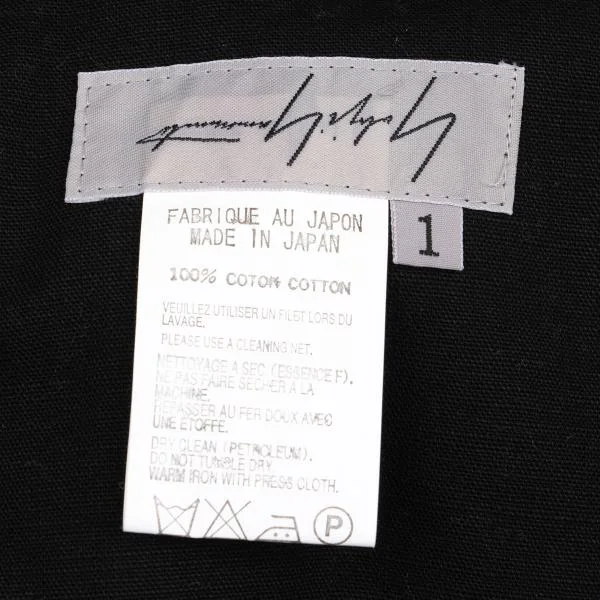 Yohji Yamamoto
FABRIQUE AU JAPON
MADE IN JAPAN
1
100% COTON COTTON
VEUILLEZ UTILISER UN FILET LORS DU
LAVAGE.
PLEASE USE A CLEANING NET.
NETTOYAGE A SEC (ESSENCE F).
NE PAS FAIRE SECHER A LA
MACHINE.
REPASSER AU FER DOUX AVEC
UNE ETOFFE.
DRY CLEAN (PETROLEUM).
DO NOT TUMBLE DRY.
WARM IRON WITH PRESS CLOTH.
P